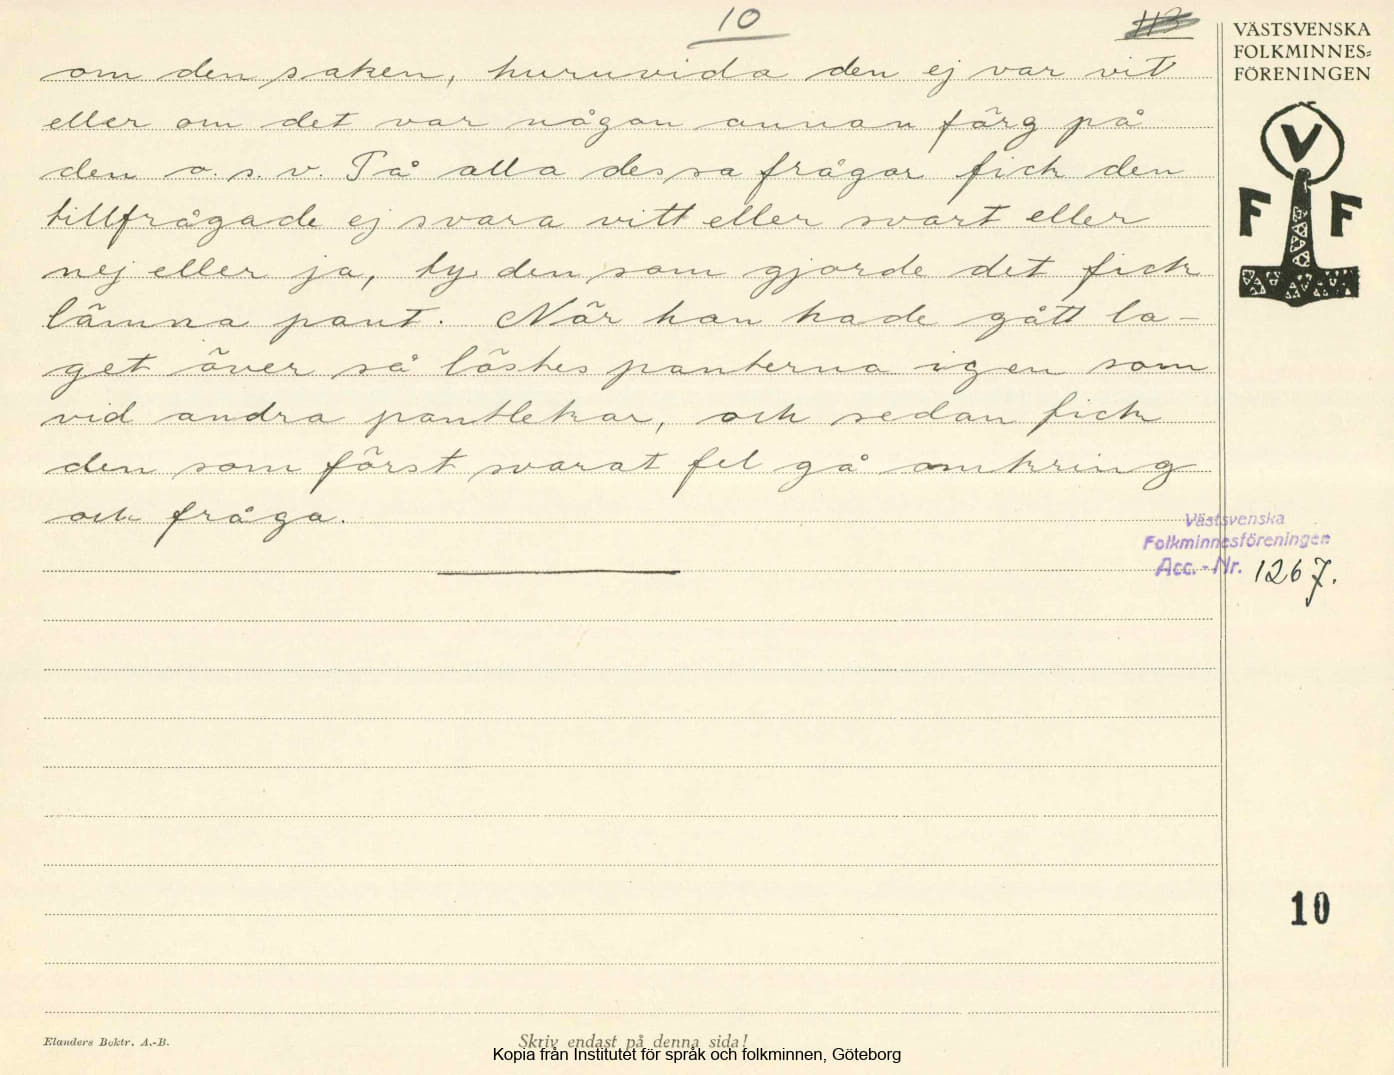 10
113
om den saken, huruvida den ej var vitt
eller om det var någon annan färg på
den o. s. v. På alla dessa frågor fick den
tillfrågade ej svara vitt eller svart eller
nej eller ja, ty den som gjorde det fick
lämna pant. När han hade gått la-
get över så löstes panterna igen som
vid andra pantlekar, och sedan fick
den som först svarat fel gå omkring
och fråga.
VÄSTSVENSKA
FOLKMINNES=
FÖRENINGEN
V
F F
Västsvenska
Folkminnesföreningen
Acc. - Nr. 1267.
10
Elanders Boktr. A.-B.
Skriv endast på denna sida!
Kopia från Institutet för språk och folkminnen, Göteborg